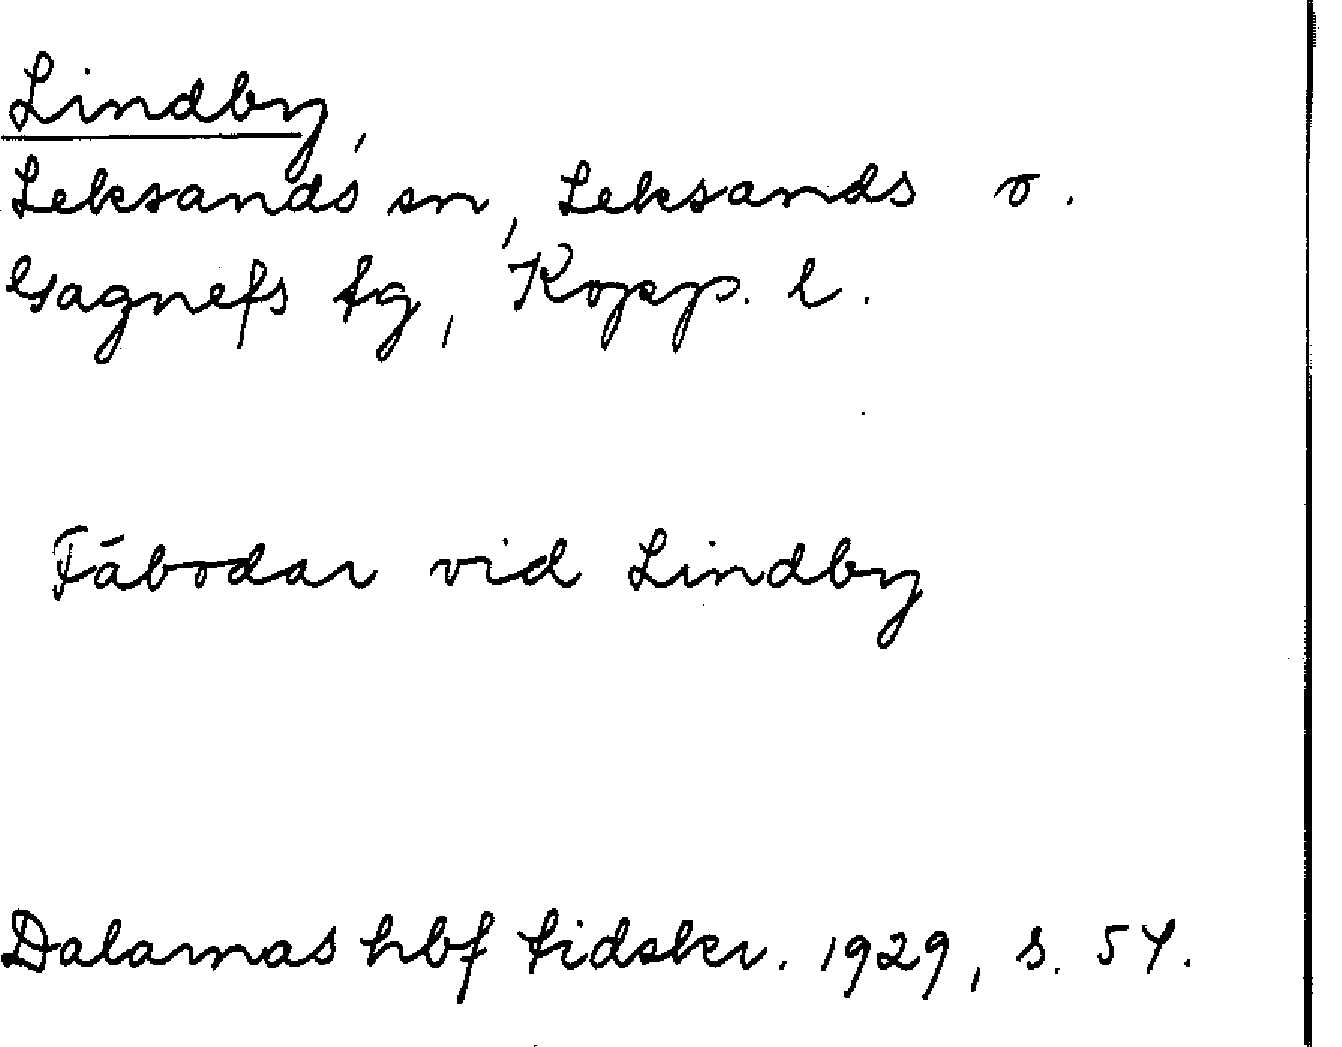 Lindby,
Leksands sn, Leksands o.
Gagnefs tg, Kopp. l.
Fäbodar vid Lindby
Dalarnas hbf tidskr. 1929, s. 54.